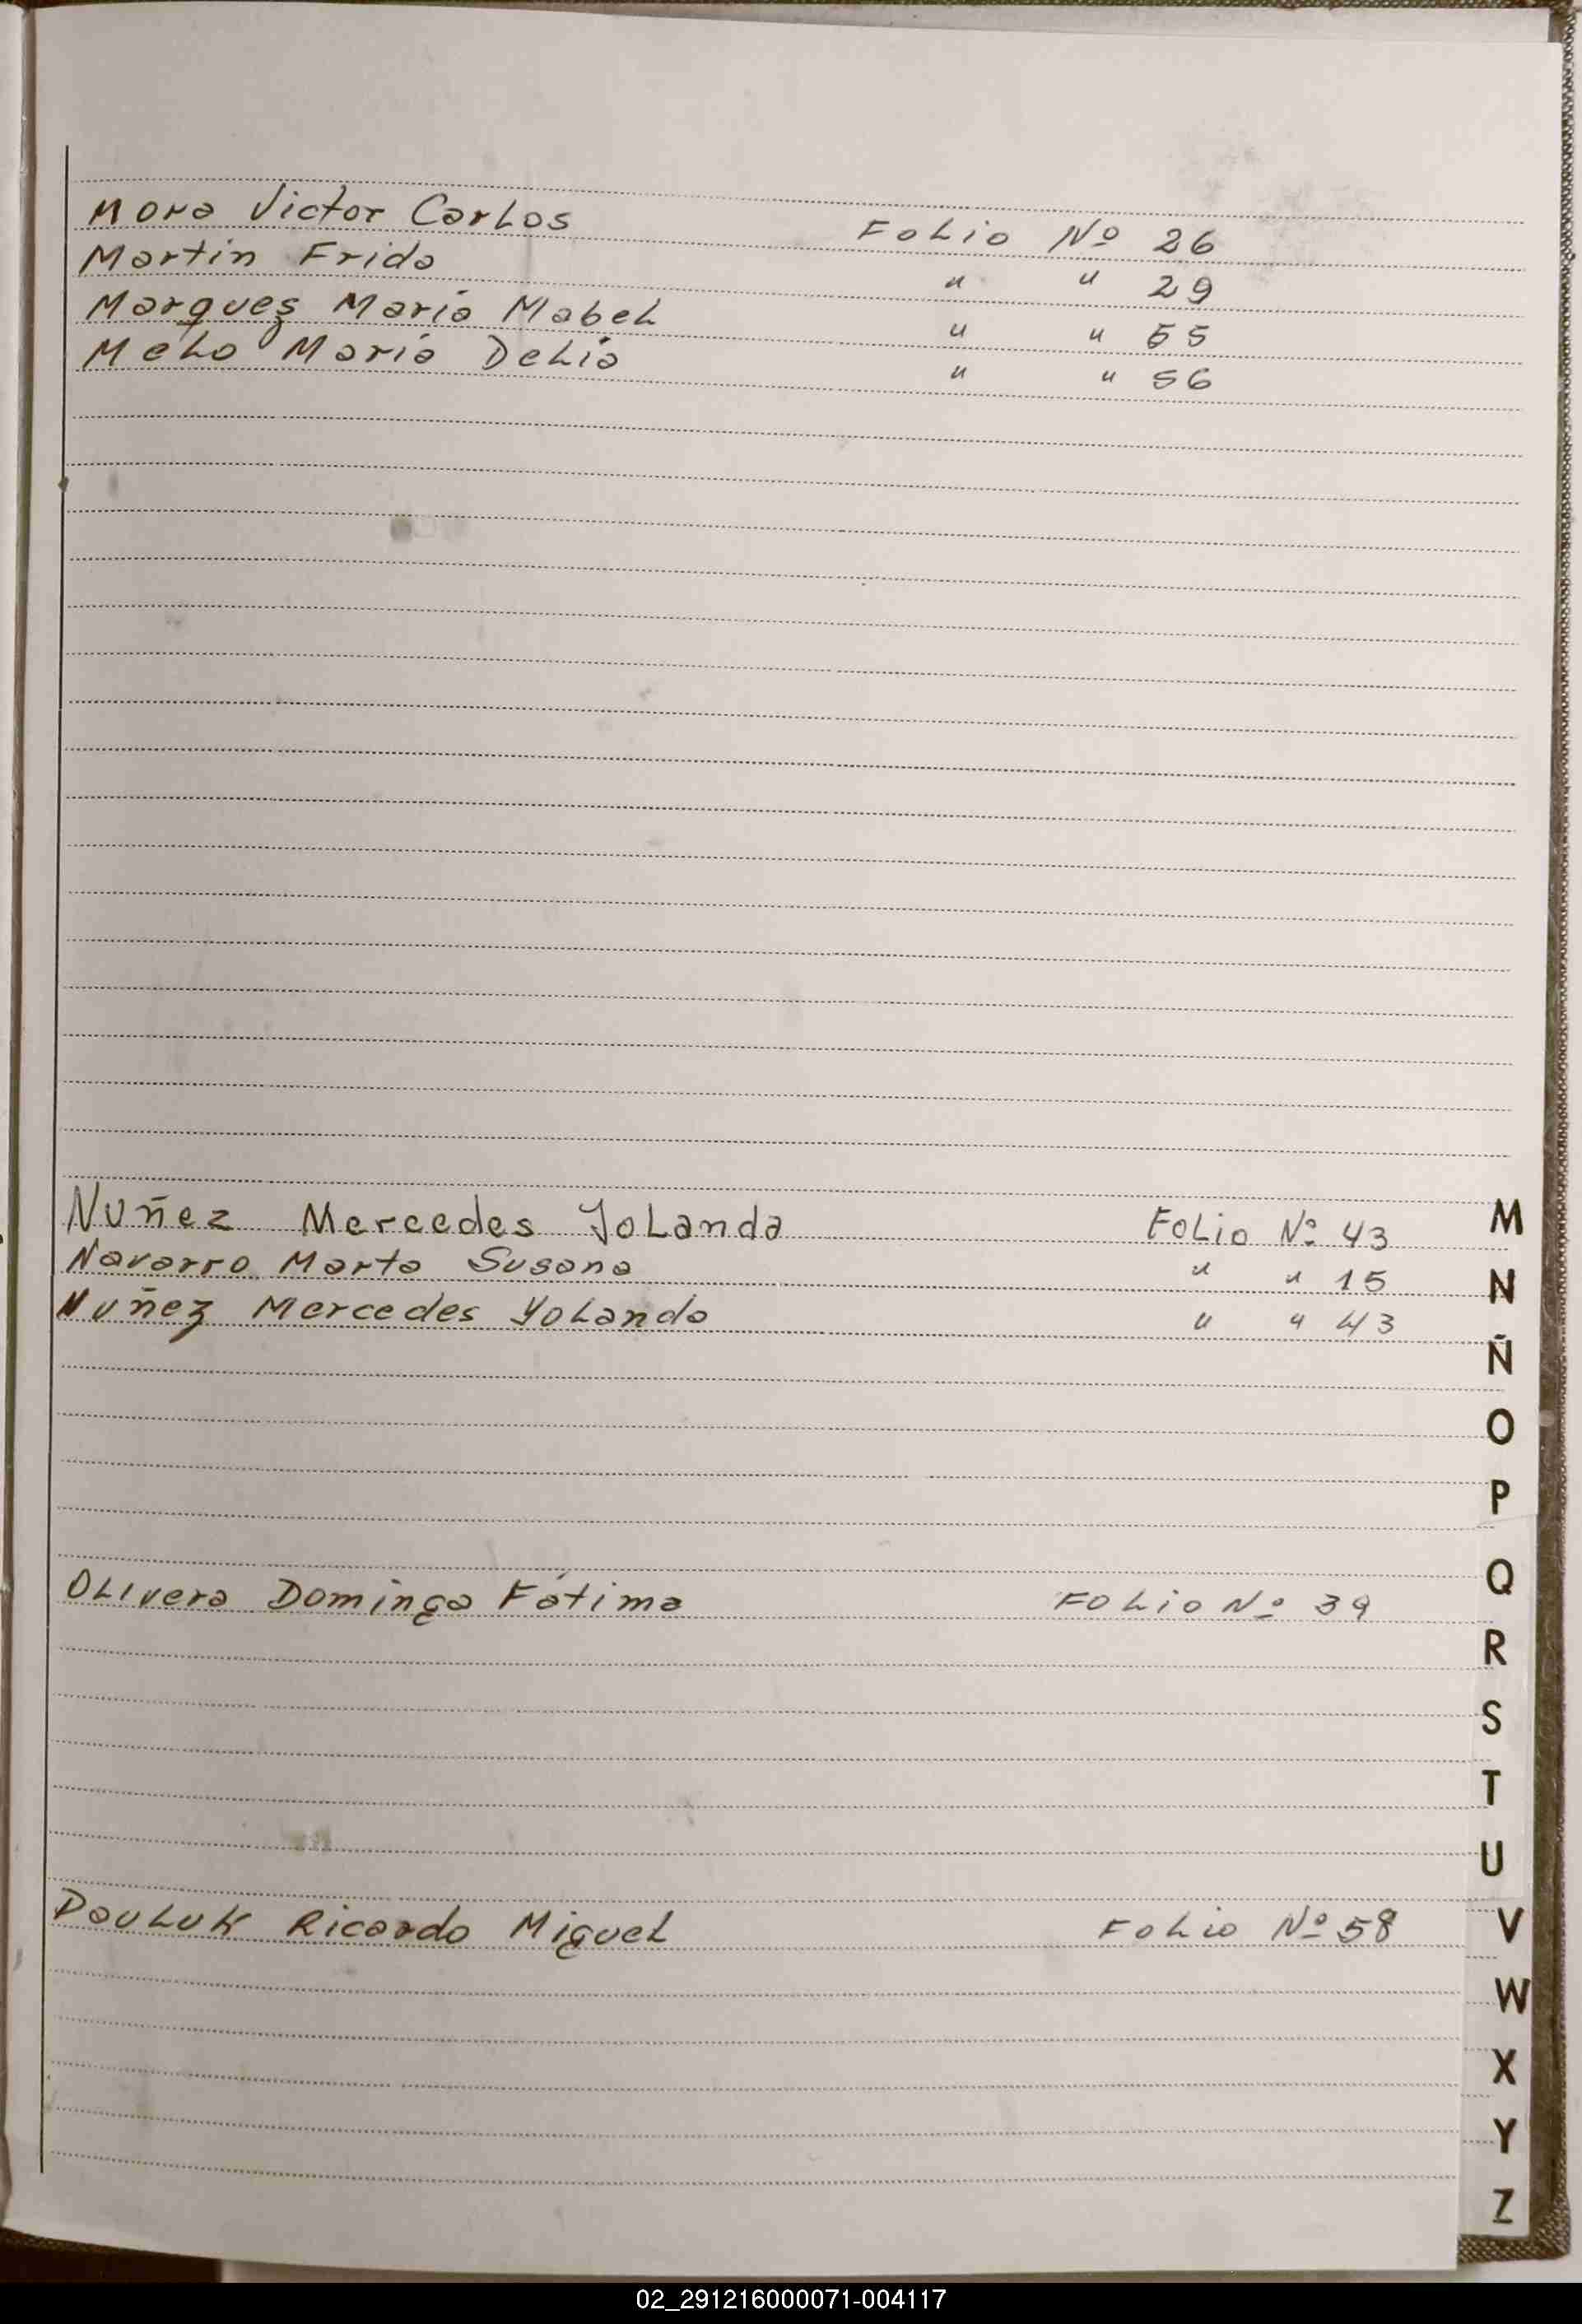 Mora Victor Carlos Folio Nº 26
Martin Frida " " 29
Marquez Maria Mabel " " 55
Melo Maria Delia " " 56
Nuñez Mercedes Yolanda Folio Nº 43
Navarro Marta Susana " " 15
Nuñez Mercedes Yolanda " " 43
Olivera Dominga Fátima Folio Nº 39
Pauluk Ricardo Miguel Folio Nº 58
M
N
Ñ
O
P
Q
R
S
T
U
V
W
X
Y
Z
02_291216000071-004117